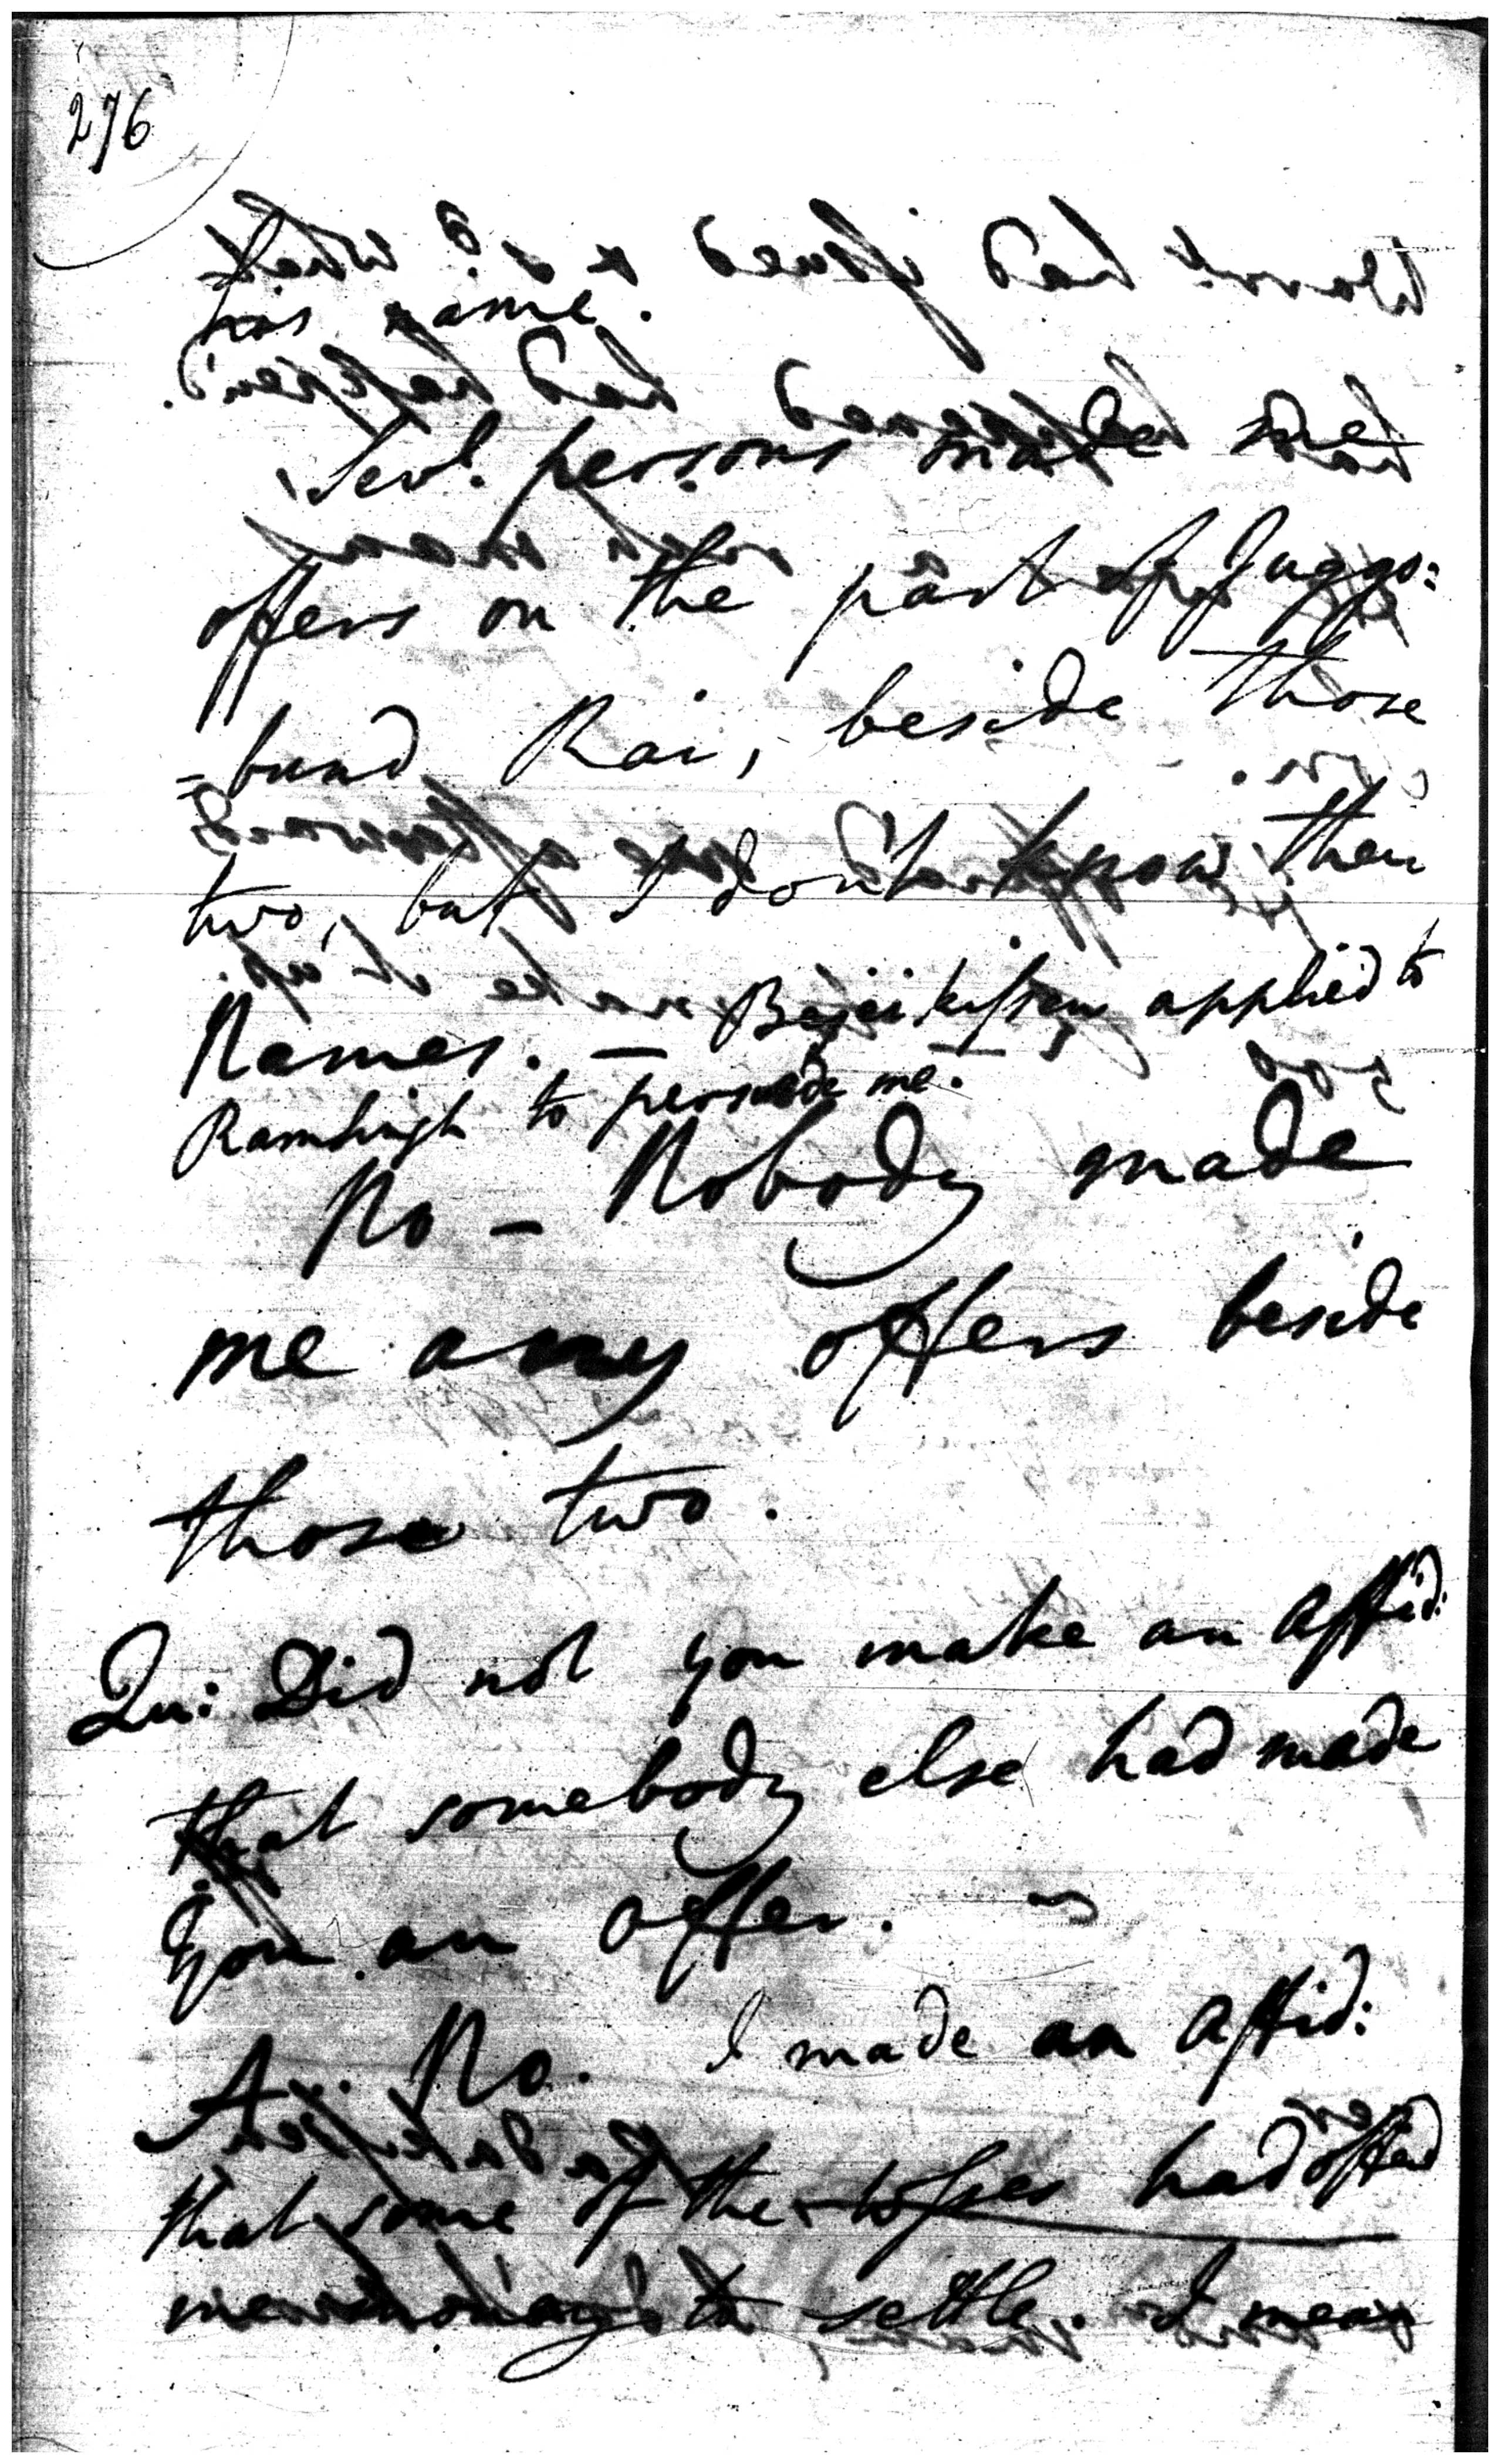 276
his name.
Sevl. persons made me
offers on the part of Juggo:
=bund Rai, beside those
two, but I don't know their
Names. — applied to
Ramsingh to persuade me. —
No — Nobody made
me any offers beside
those two.
Qu: Did not you make an Affid:
that somebody else had made
you an offer.
A: No. I made an Affid:
that some of the had offered
me money to settle. I mean